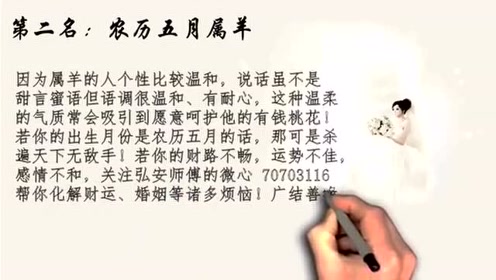 第二名：农历五月属羊
因为属羊的人个性比较温和，说话虽不是
甜言蜜语但语调很温和、有耐心，这种温柔
的气质常会吸引到愿意呵护他的有钱桃花！
若你的出生月份是农历五月的话，那可是杀
遍天下无敌手！若你的财路不畅，运势不佳，
感情不和，关注弘安师傅的微心 70703116
帮你化解财运、婚姻等诸多烦恼！广结善